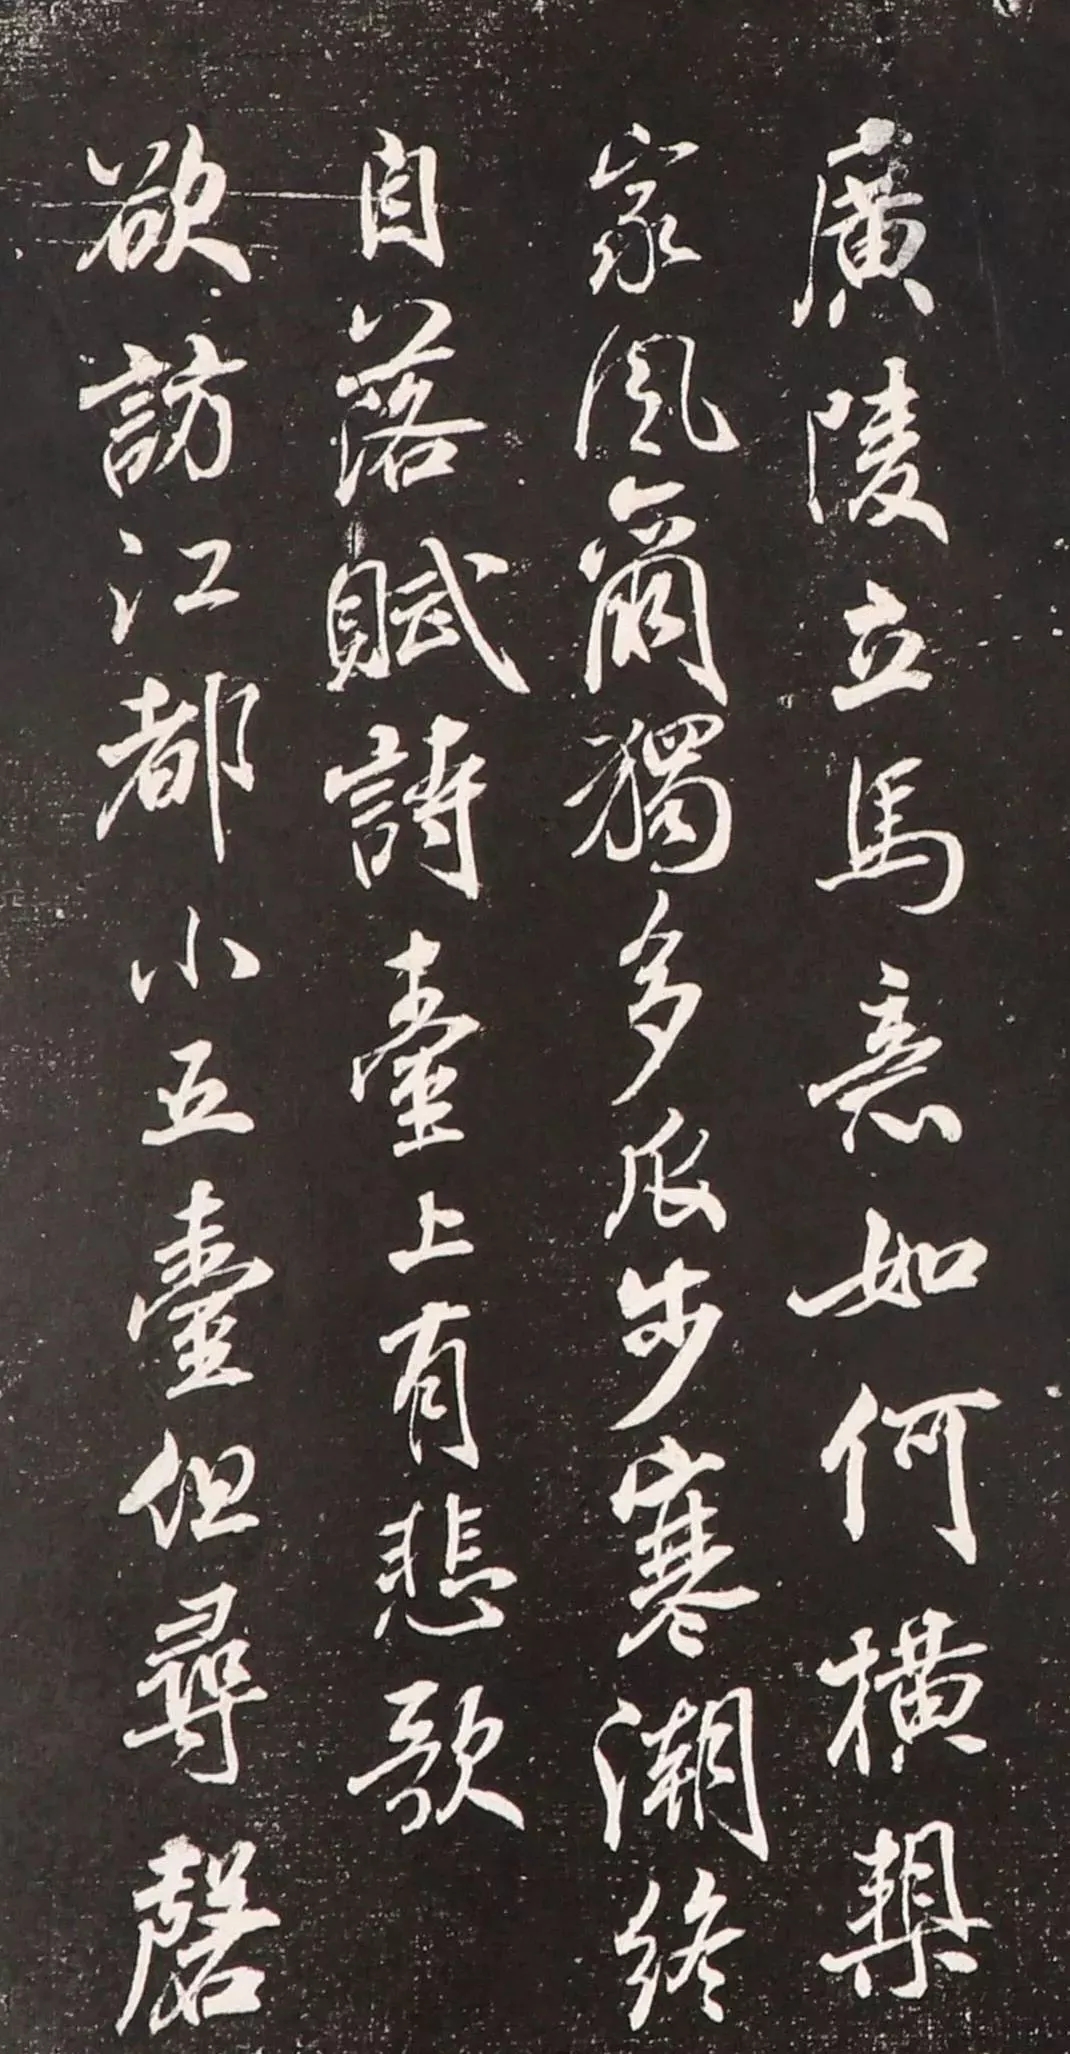 廣陵立馬意如何橫槊
家風爾獨多瓜步寒潮終
自落賦詩臺上有悲歌
欲訪江都小五臺但尋磬